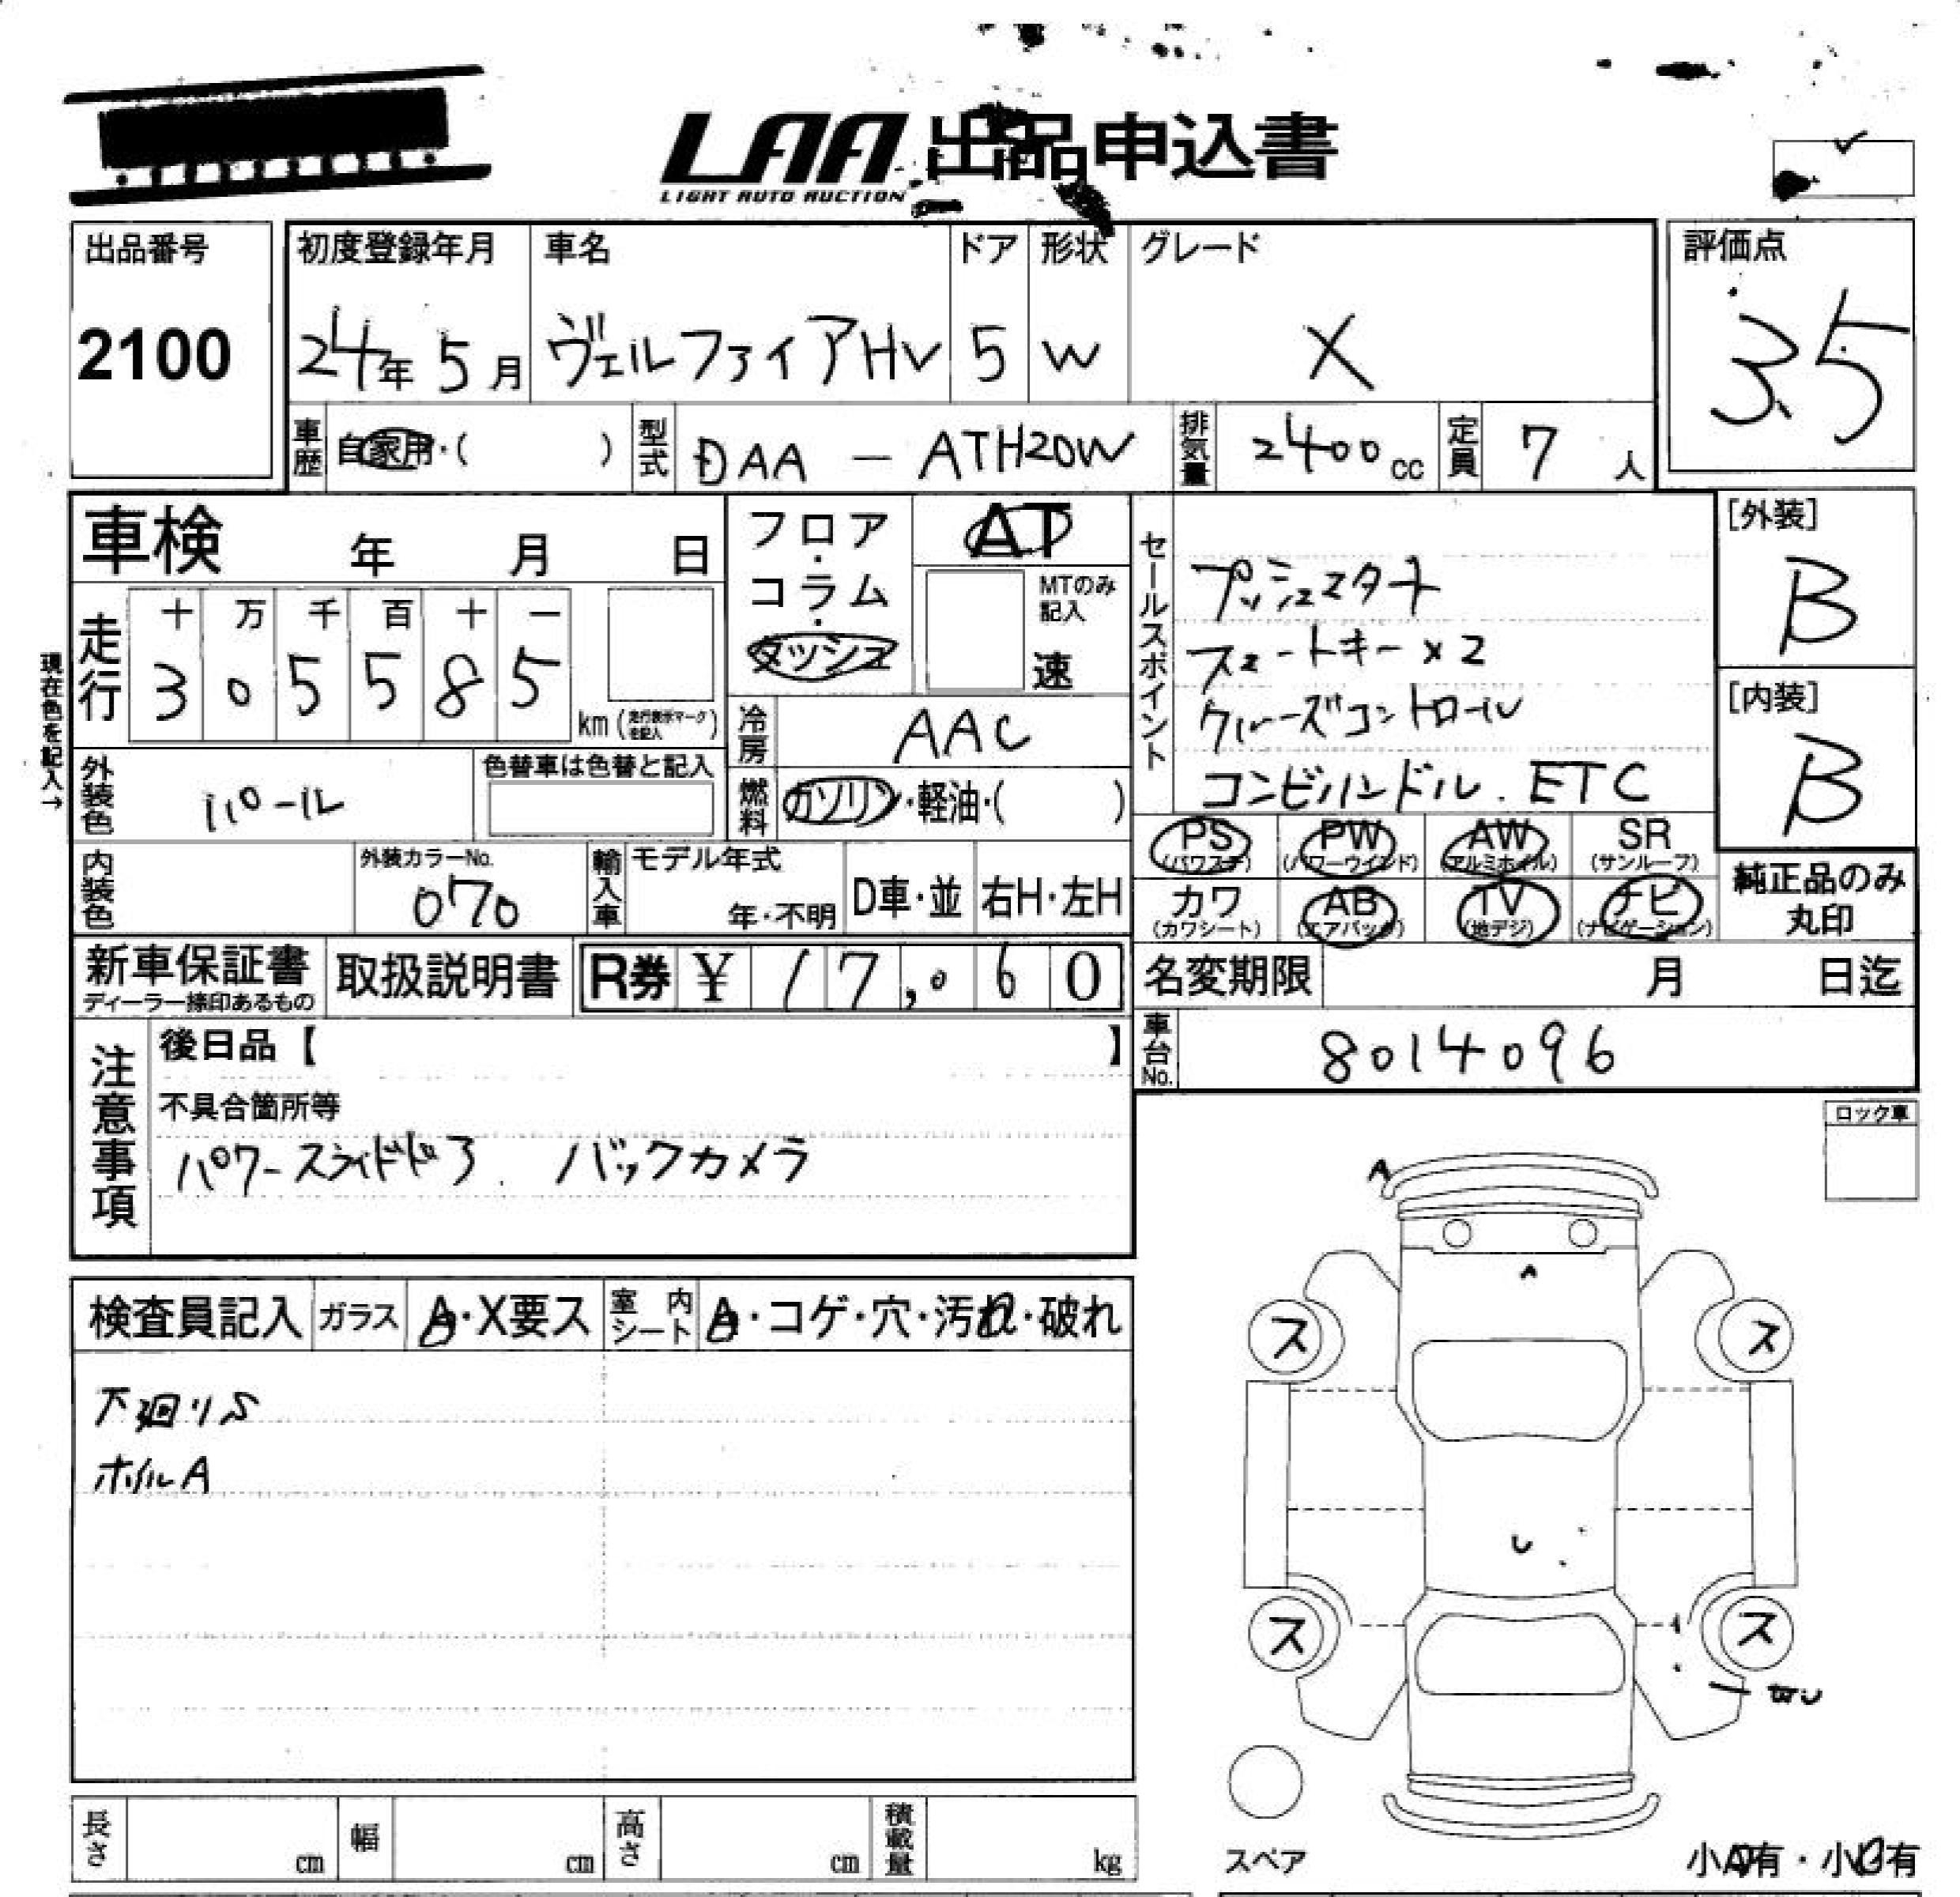 LAA 出品申込書
LIGHT AUTO AUCTION
出品番号
2100
初度登録年月 車名 ドア 形状 グレード
24年 5月 ヴェルファイアHV 5 W X
評価点
3.5
車歴 自家用・( ) 型式 DAA - ATH20W 排気量 2400cc 定員 7人
車検 年 月 日
フロア・コラム・ダッシュ
AT
MTのみ記入
速
現在色を記入→
走行 十 万 千 百 十 一
3 0 5 5 8 5
km (走行表示マークを記入)
冷房 AAC
外装色 パール 色替車は色替と記入
燃料 ガソリン・軽油・( )
内装色
外装カラーNo.
070
輸入車 モデル年式
年・不明 D車・並 右H・左H
セールスポイント
プッシュスタート
スマートキー×2
クルーズコントロール
コンビハンドル. ETC
[外装]
B
[内装]
B
PS (パワステ) PW (パワーウインド) AW (アルミホイル) SR (サンルーフ)
カワ (カワシート) AB (エアバック) TV (地デジ) ナビ (ナビゲーション)
純正品のみ
丸印
新車保証書
ディーラー捺印あるもの
取扱説明書 R券 ¥ 17,060
名変期限 月 日迄
車台No. 8014096
注意事項
後日品【 】
不具合箇所等
パワースライドドア. バックカメラ
ロック車
検査員記入 ガラス A・X要ス 室内シート A・コゲ・穴・汚れ・破れ
下廻りS
ホイルA
A
A
ス ス
U
ス ス
WU
スペア
小A有・小U有
長さ cm 幅 cm 高さ cm 積載量 kg